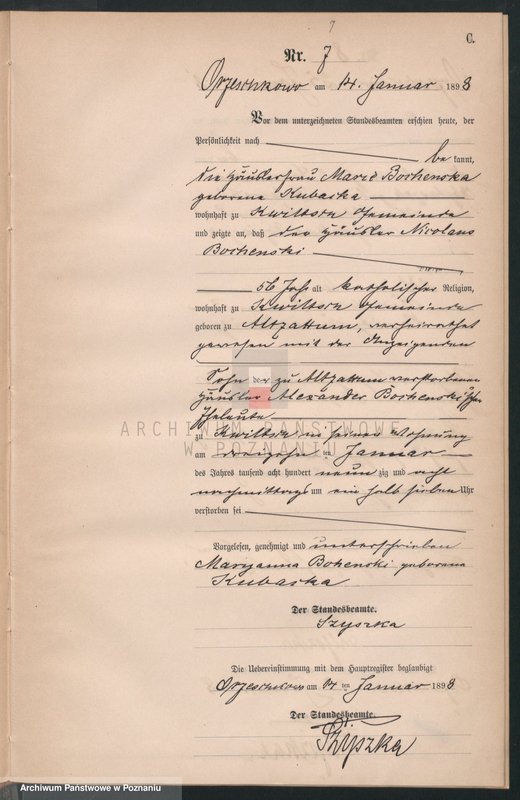 7
C.
Nr. 7
Orzeschkowo am 14. Januar 1898
Vor dem unterzeichneten Standesbeamten erschien heute, der
Persönlichkeit nach
be kannt,
die Häuslerfrau Marie Bochenska
geborene Kubacka
wohnhaft zu Kwiltsch Gemeinde
und zeigte an, daß der Häusler Nicolaus
Bochenski
56 Jahr alt katholischer Religion,
wohnhaft zu Kwiltsch Gemeinde
geboren zu Altzattum, verheirathet
gewesen mit der Anzeigenden
Sohn der zu Altzattum verstorbenen
Häusler Alexander Bochenski'schen
Eheleute
zu Kwiltsch in seiner Wohnung
am dreizehn ten Januar
des Jahres tausend acht hundert neun zig und acht
nachmittags um ein halb sieben Uhr
verstorben sei
Vorgelesen, genehmigt und unterschrieben
Maryanna Bohenski geborena
Kubacka
Der Standesbeamte.
Szyszka
Die Uebereinstimmung mit dem Hauptregister beglaubigt
Orzeschkowo am 14 ten Januar 1898
Der Standesbeamte.
Szyszka
ARCHIWUM PAŃSTWOWE
W POZNANIU
Archiwum Państwowe w Poznaniu